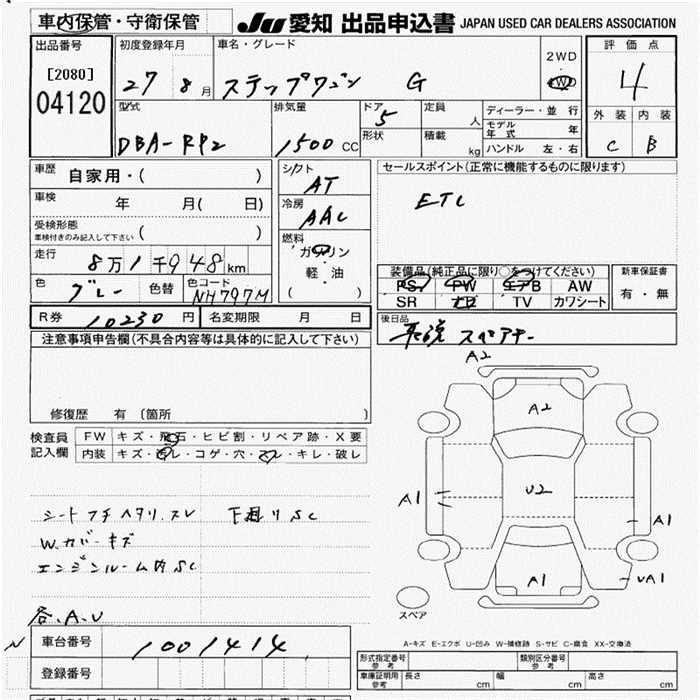 車内保管・守衛保管
JU 愛知 出品申込書 JAPAN USED CAR DEALERS ASSOCIATION
出品番号
[2080]
04120
初度登録年月
27 8月
車名・グレード
ステップワゴン G
2WD
4WD
評価点
4
外装 内装
C B
型式
DBA-RP2
排気量
1500 CC
ドア
5
形状
定員
人
積載
kg
ディーラー・並行
モデル年式 年
ハンドル 左・右
車歴
自家用・( )
車検
年 月( 日)
受検形態
車検付きのみ記入して下さい ( )
走行
8万1千948km
色
グレー
色替
色コード
NH797M
シフト
AT
冷房
AAC
燃料
ガソリン
軽・油
( )
セールスポイント(正常に機能するものに限ります)
ETC
装備品(純正品に限り○をつけてください)
PS PW エアB AW
SR ナビ TV カワシート
新車保証書
有・無
R券 10230円
名変期限 月 日
後日品
取説 スペアキー
注意事項申告欄(不具合内容等は具体的に記入して下さい)
修復歴 有 (箇所 )
検査員
記入欄
FW キズ・飛石・ヒビ割・リペア跡・X要
内装 キズ・汚レ・コゲ・穴・スレ・キレ・破レ
シートフチヘタリ.スレ 下廻りSC
W.カバーキズ
エンジンルーム内SC
各.A.U
A2
A2
U2
A1
A1
A1
UA1
スペア
N
車台番号 1001414
登録番号
A-キズ E-エクボ U-凹み W-補修跡 S-サビ C-腐食 XX-交換済
形式指定番号 参考
類別区分番号 参考
車庫証明用 参考
長さ cm 幅 cm 高さ cm